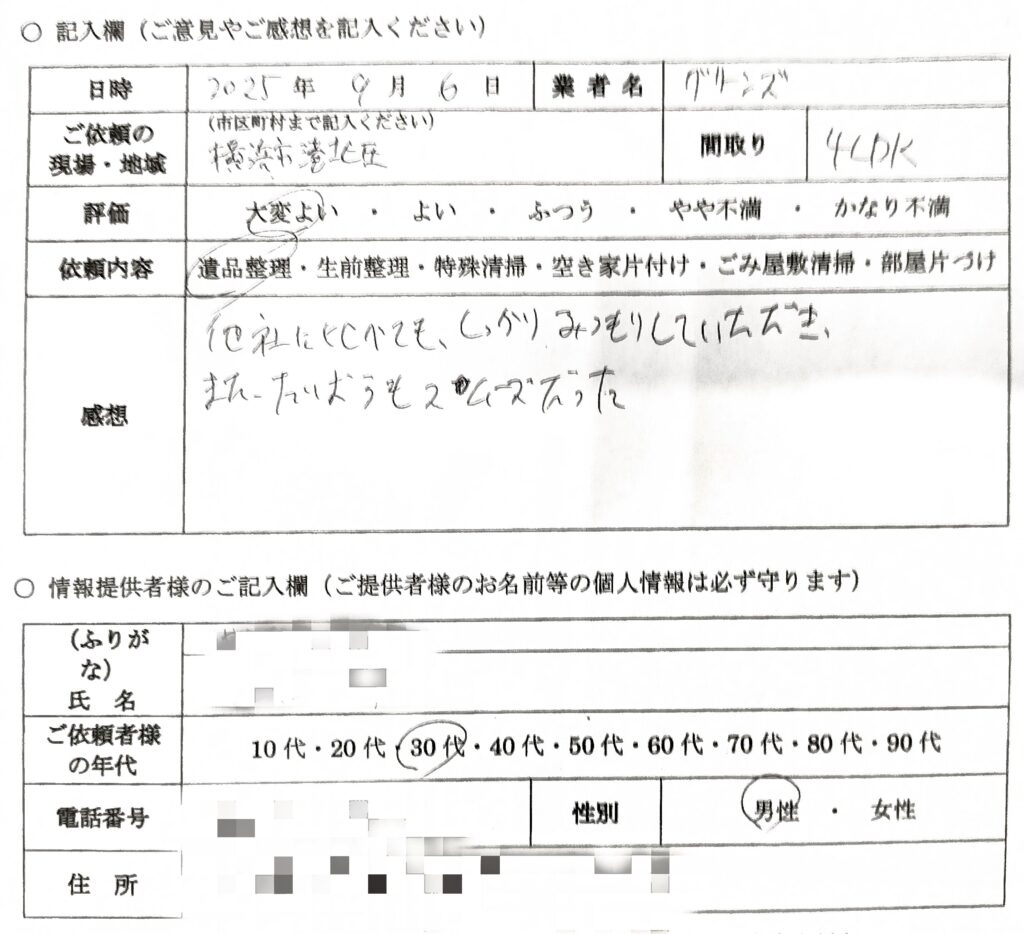 ○ 記入欄（ご意見やご感想を記入ください）
日時 2025 年 9 月 6 日 業者名 グリーンズ
ご依頼の現場・地域 （市区町村まで記入ください）
横浜市港北区 間取り 4LDK
評価 大変よい ・ よい ・ ふつう ・ やや不満 ・ かなり不満
依頼内容 遺品整理・生前整理・特殊清掃・空き家片付け・ごみ屋敷清掃・部屋片づけ
感想
他社にくらべても、しっかりみつもりしていただき、
また、たいおうもスムーズだった
○ 情報提供者様のご記入欄（ご提供者様のお名前等の個人情報は必ず守ります）
（ふりがな）
氏 名
ご依頼者様の年代 10代・20代・30代・40代・50代・60代・70代・80代・90代
電話番号 性別 男性 ・ 女性
住 所